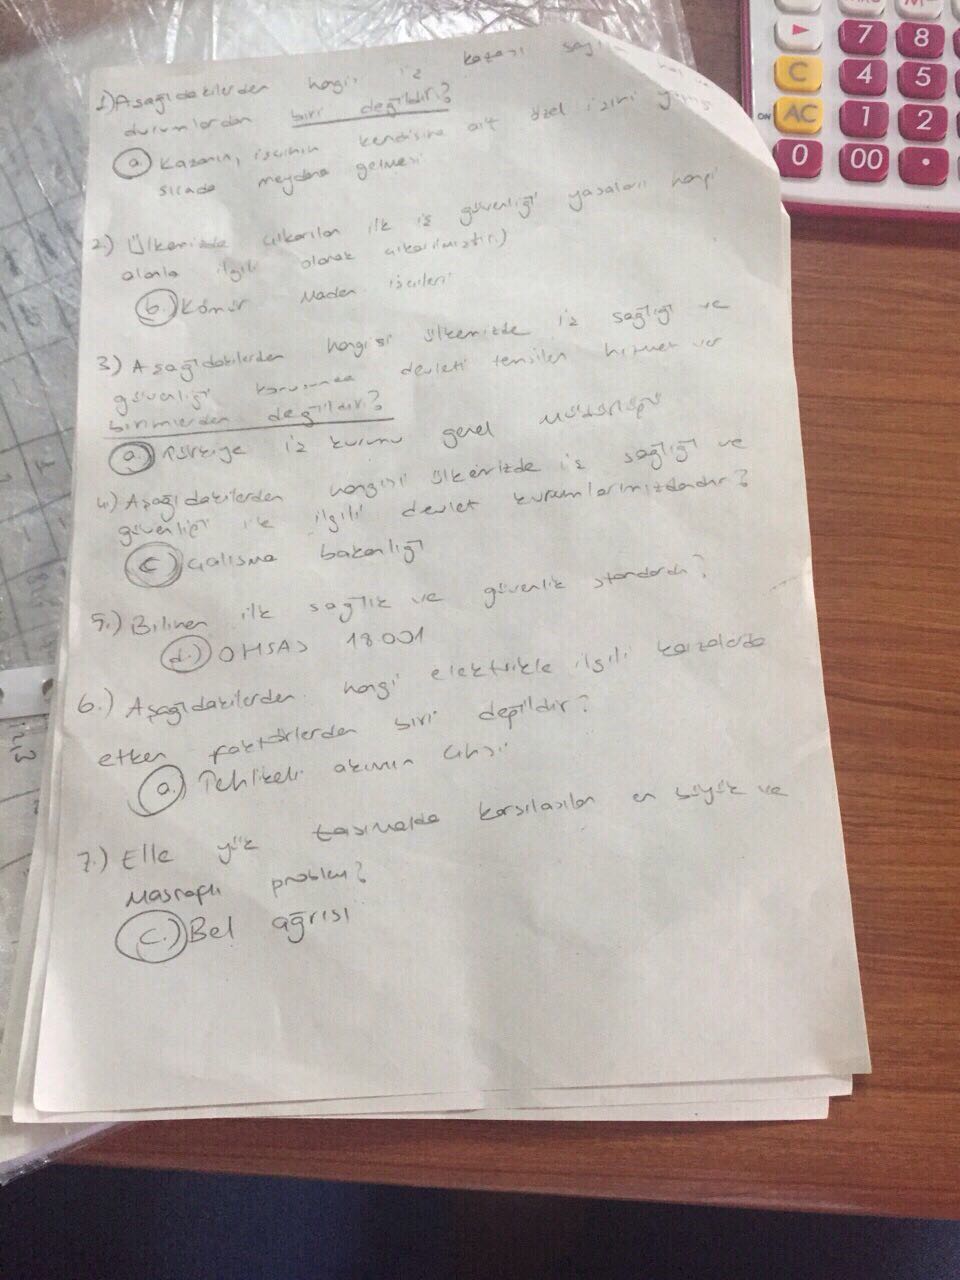 1) Aşağıdakilerden hangisi iş kazası sayılan
durumlardan biri değildir?
a. Kazanın, işçinin kendisine ait özel işini yaptığı
sırada meydana gelmesi
2.) Ülkemizde çıkarılan ilk iş güvenliği yasaları hangi
alanla ilgili olarak çıkarılmıştır.)
b.) Kömür Maden işçileri
3.) Aşağıdakilerden hangisi ülkemizde iş sağlığı ve
güvenliği konusunda devleti temsilen hizmet ver
birimlerden değildir?
a. Türkiye iş kurumu genel Müdürlüğü
4.) Aşağıdakilerden hangisi ülkemizde iş sağlığı ve
güvenliği ile ilgili devlet kurumlarımızdandır?
c) Çalışma bakanlığı
5.) Bilinen ilk sağlık ve güvenlik standardı?
d.) OHSAS 18001
6.) Aşağıdakilerden hangi elektrikle ilgili kazalarda
etken faktörlerden biri değildir?
a.) Tehlikeli akımın cinsi
7.) Elle yük taşımada karşılaşılan en büyük ve
Masraflı problem?
c.) Bel ağrısı
7 8
C 4 5
ON AC 1 2
0 00 •